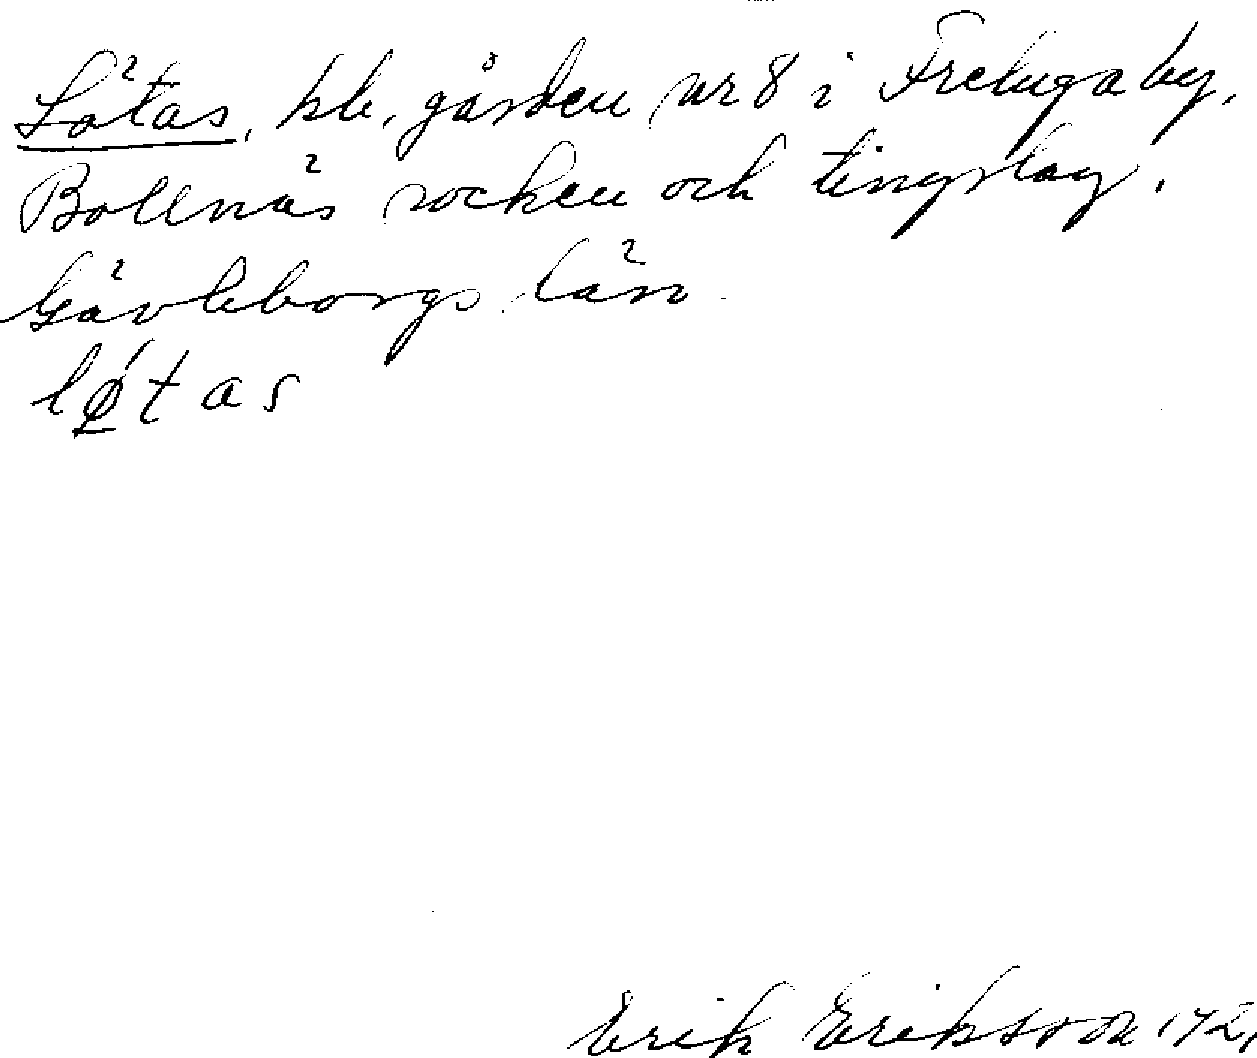 Lötas, ble, gården nr 8 i Freluga by,
Bollnäs socken och tingslag,
Gävleborgs län
lǿtas
Erik Eriksson